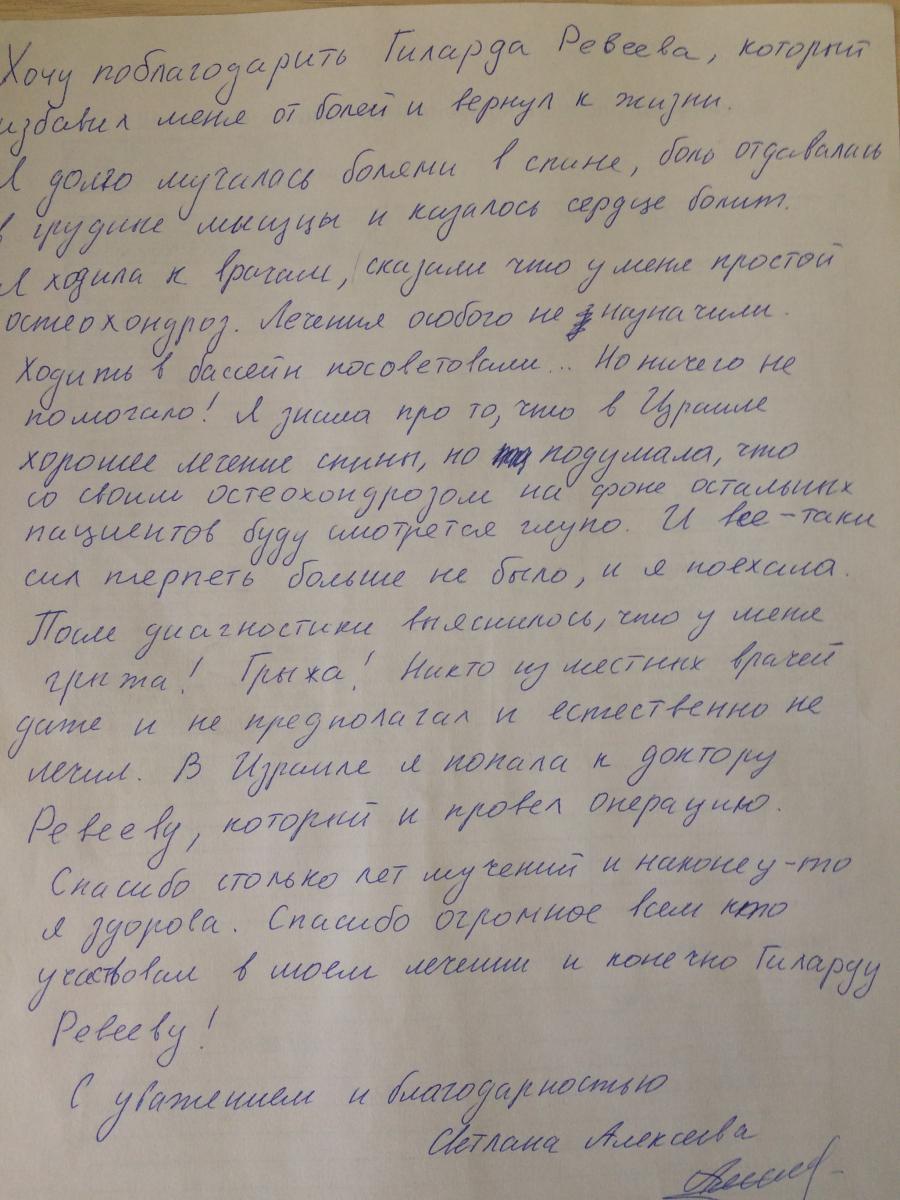 Хочу поблагодарить Гиларда Ревеева, который
избавил меня от болей и вернул к жизни.
Я долго мучалась болями в спине, боль отдавалась
в грудине мышцы и казалось сердце болит.
Я ходила к врачам, сказали что у меня простой
остеохондроз. Лечения особого не назначили.
Ходить в бассейн посоветовали... Но ничего не
помогало! Я знала про то, что в Израиле
хорошее лечение спины, но подумала, что
со своим остеохондрозом на фоне остальных
пациентов буду смотрется глупо. И все-таки
сил терпеть больше не было, и я поехала.
После диагностики выяснилось, что у меня
грыжа! Грыжа! Никто из местных врачей
даже и не предполагал и естественно не
лечил. В Израиле я попала к доктору
Ревееву, который и провел операцию.
Спасибо столько лет мучений и наконец-то
я здорова. Спасибо огромное всем кто
участвовал в моем лечении и конечно Гиларду
Ревееву!
С уважением и благодарностью
Светлана Алексеева